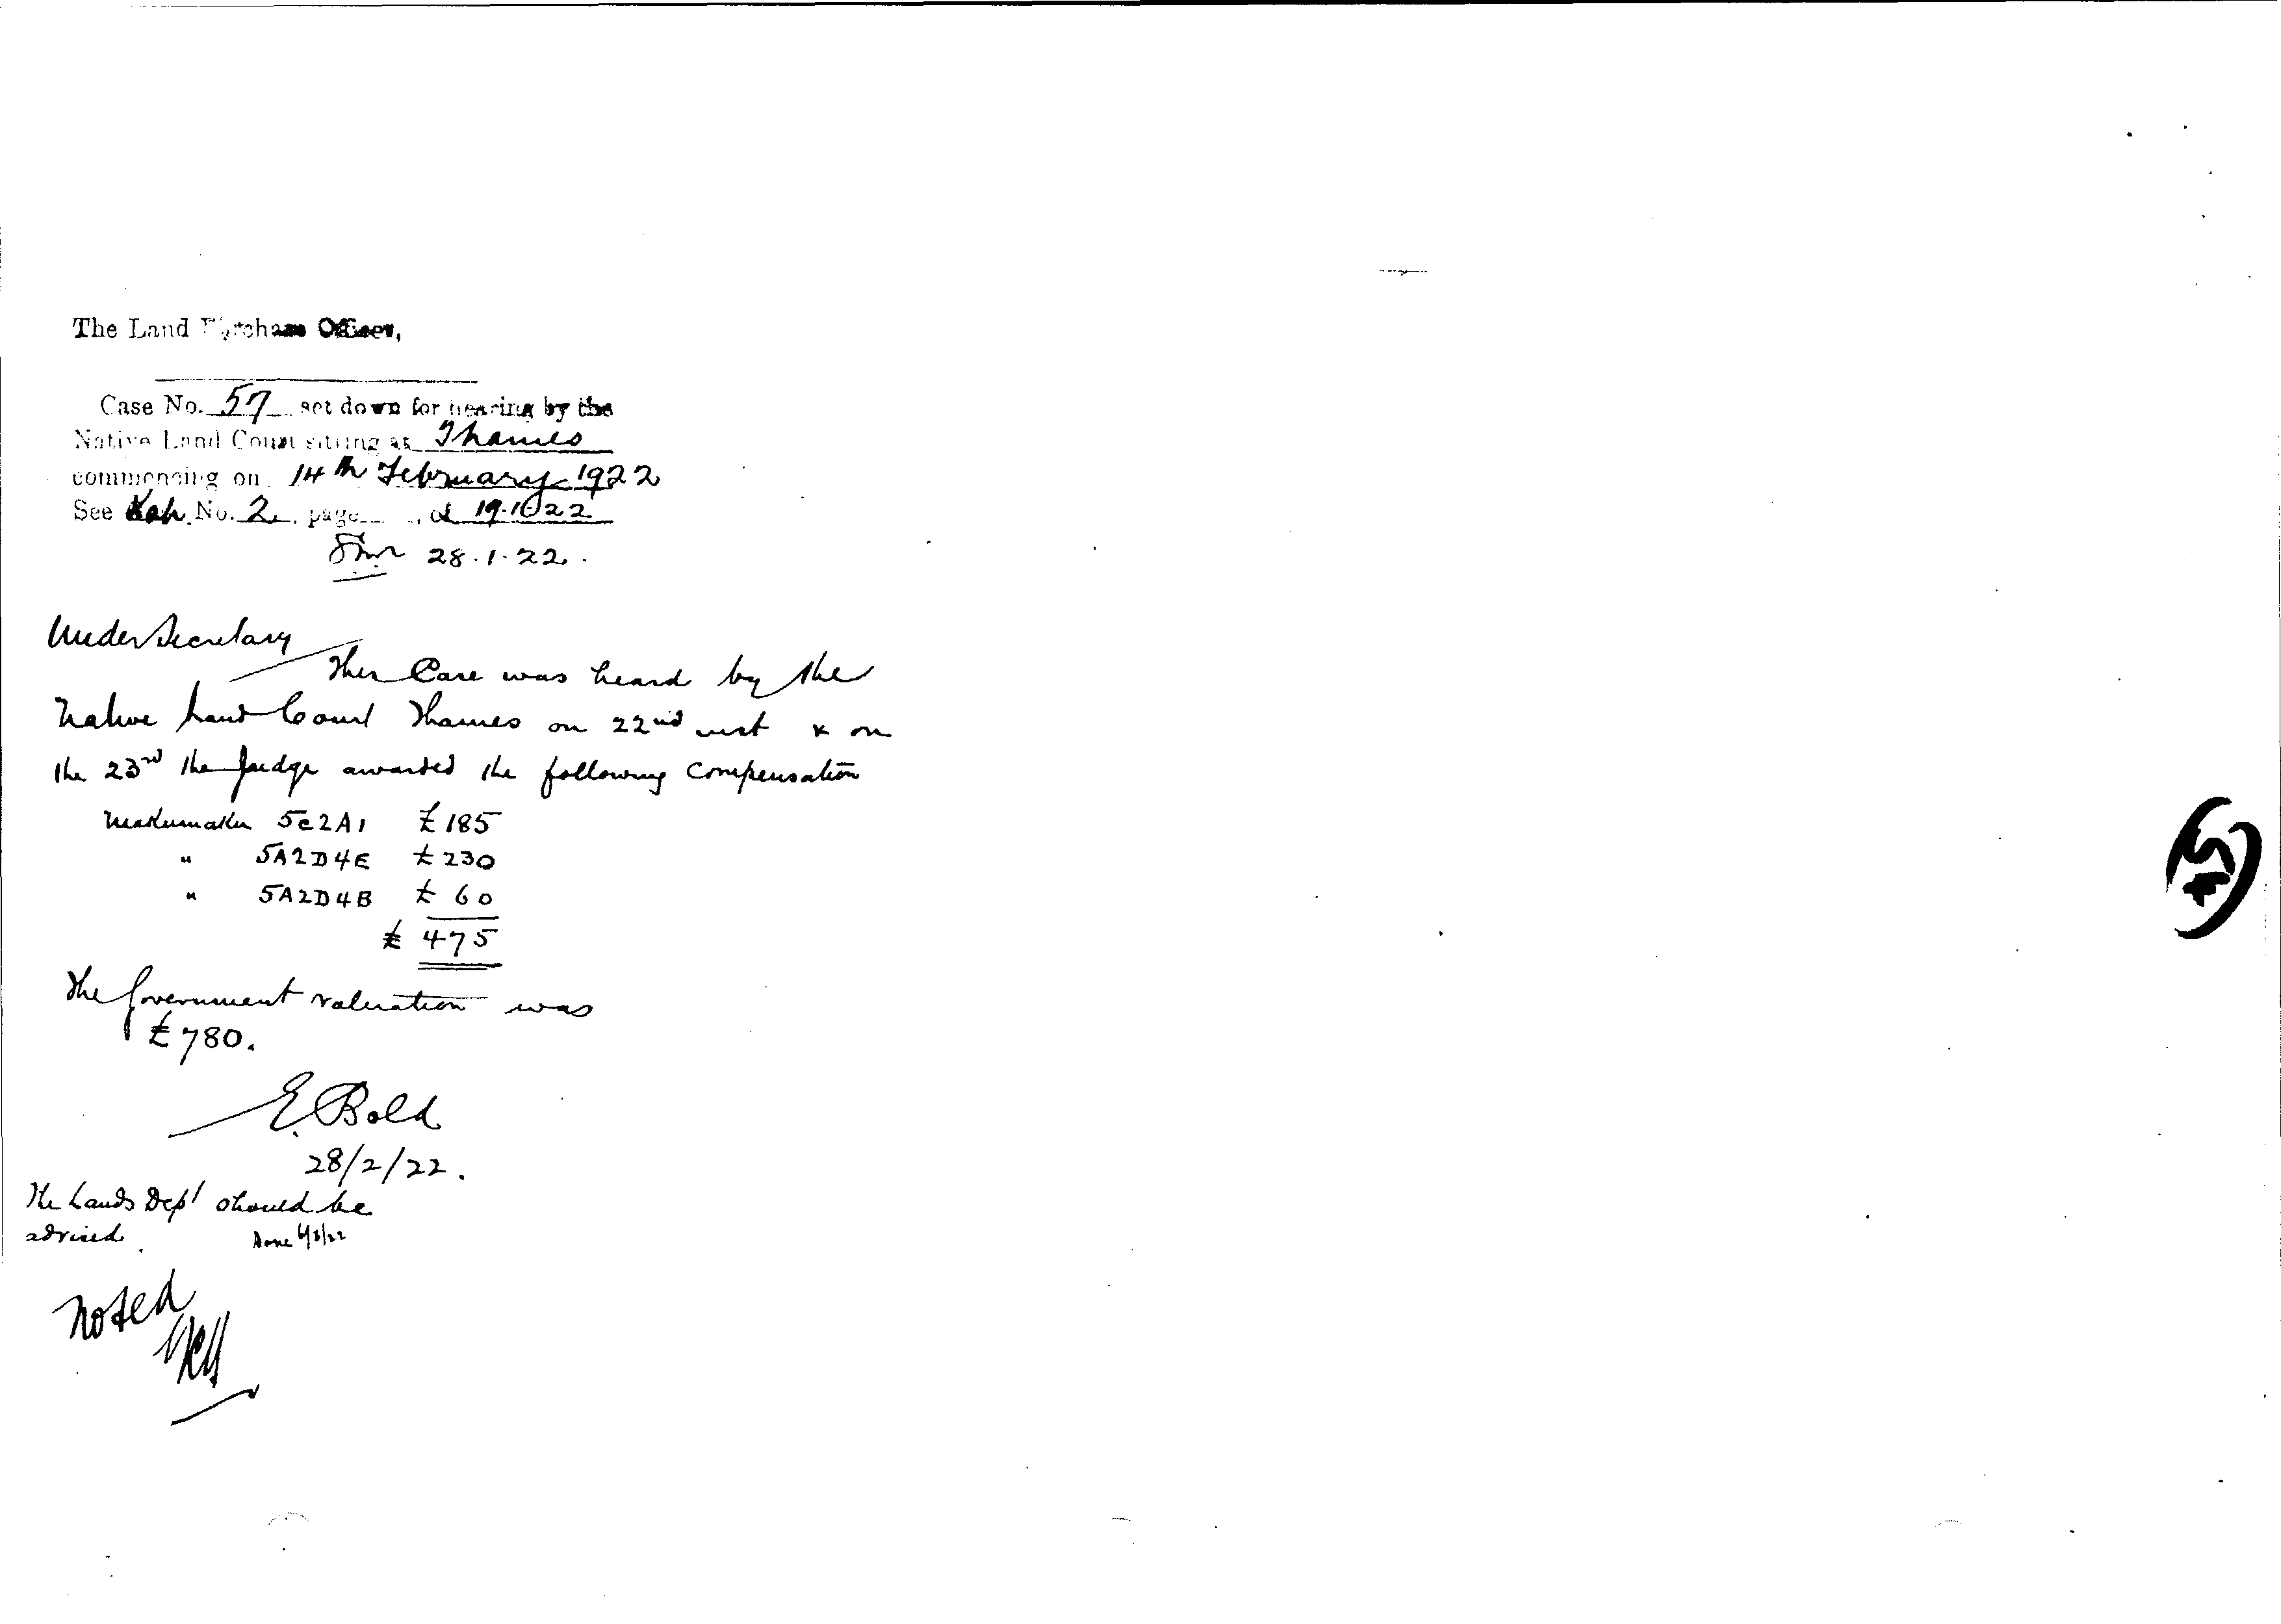 The Land Purchase Officer,
Case No. 57 set down for hearing by the
Native Land Court sitting at Thames
commencing on 14th February 1922
See Kah. No. 2, page , of 19.1.22
28.1.22.
Under Secretary
This Case was heard by the
Native Land Court Thames on 22nd inst & on
the 23rd the Judge awarded the following compensation
Makumaku 5c2A1 £185
" 5A2D4E £230
" 5A2D4B £ 60
£ 475
The Government valuation was
£780.
E. Bold
28/2/22.
The Lands Dept should be
advised. Done 6/3/22
Noted